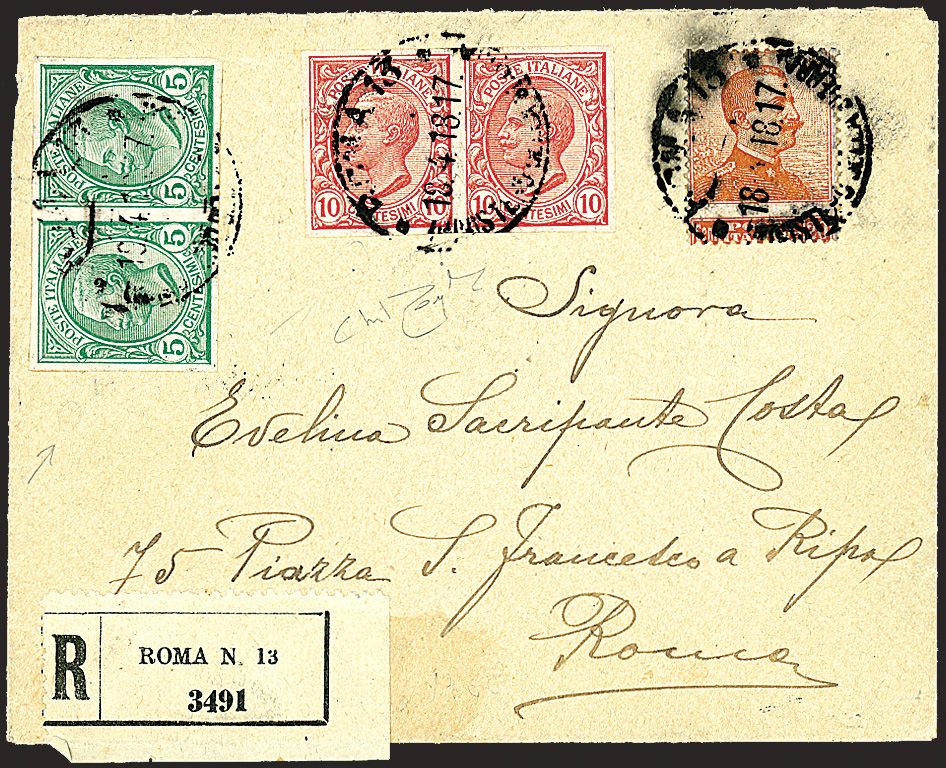 POSTE ITALIANE
5 CENTESIMI 5
POSTE ITALIANE
5 CENTESIMI 5
POSTE ITALIANE
10 CENTESIMI 10
POSTE ITALIANE
10 CENTESIMI 10
ROMA 13
18.4.18.17
ROMA 13
18 18.17
Signora
Evelina Sacripante Costa
75 Piazza S. Francesco a Ripa
Roma
R
ROMA N. 13
3491